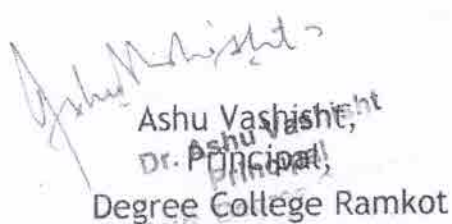 Ashu Vashisht
Ashu Vashisht,
Dr. Ashu Vashisht
Principal,
Principal
Degree College Ramkot